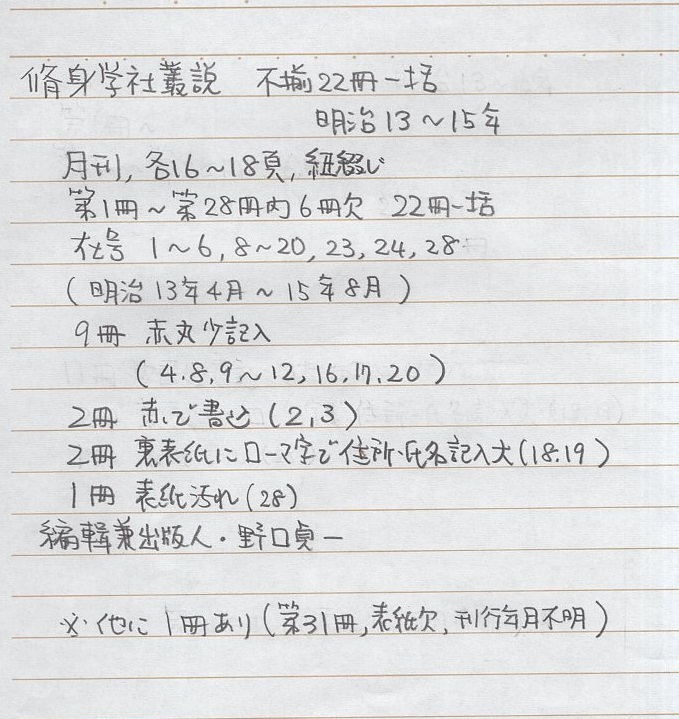 脩身学社叢説　不揃22冊一括
明治13～15年
月刊, 各16～18頁, 紐綴じ
第1冊～第28冊内6冊欠　22冊一括
在号　1～6, 8～20, 23, 24, 28
(明治13年4月～15年8月)
9冊　赤丸少記入
(4.8.9～12,16.17.20)
2冊　赤で書込(2,3)
2冊　裏表紙にローマ字で住所・氏名記入大(18.19)
1冊　表紙汚れ(28)
編輯兼出版人・野口貞一
※他に1冊あり(第31冊,表紙欠,刊行年月不明)